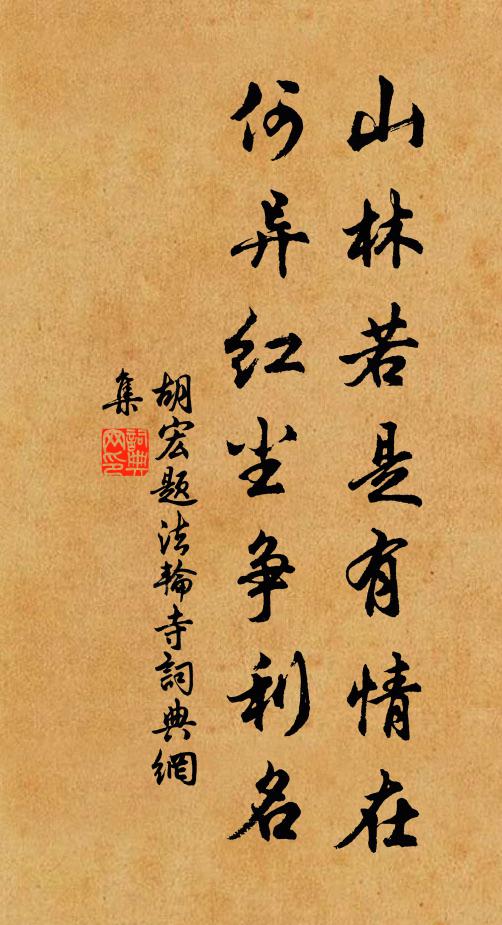 山林若是有情在
何异红尘争利名
胡宏题法輪寺詞典網
集
詞典網印